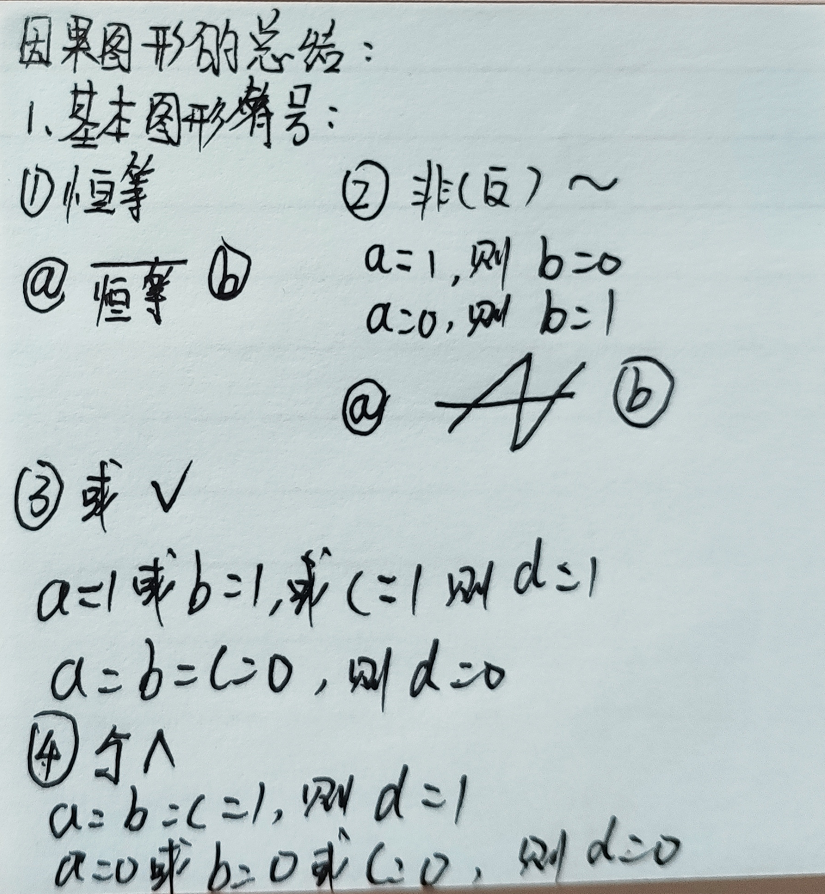 因果图形的总结：
1、基本图形符号：
①恒等
ⓐ 恒等 ⓑ
② 非(反) ～
a=1,则 b=0
a=0,则 b=1
ⓐ ⓑ
③ 或 ∨
a=1或b=1,或c=1则d=1
a=b=c=0,则d=0
④ 与∧
a=b=c=1,则d=1
a=0或b=0或c=0,则d=0